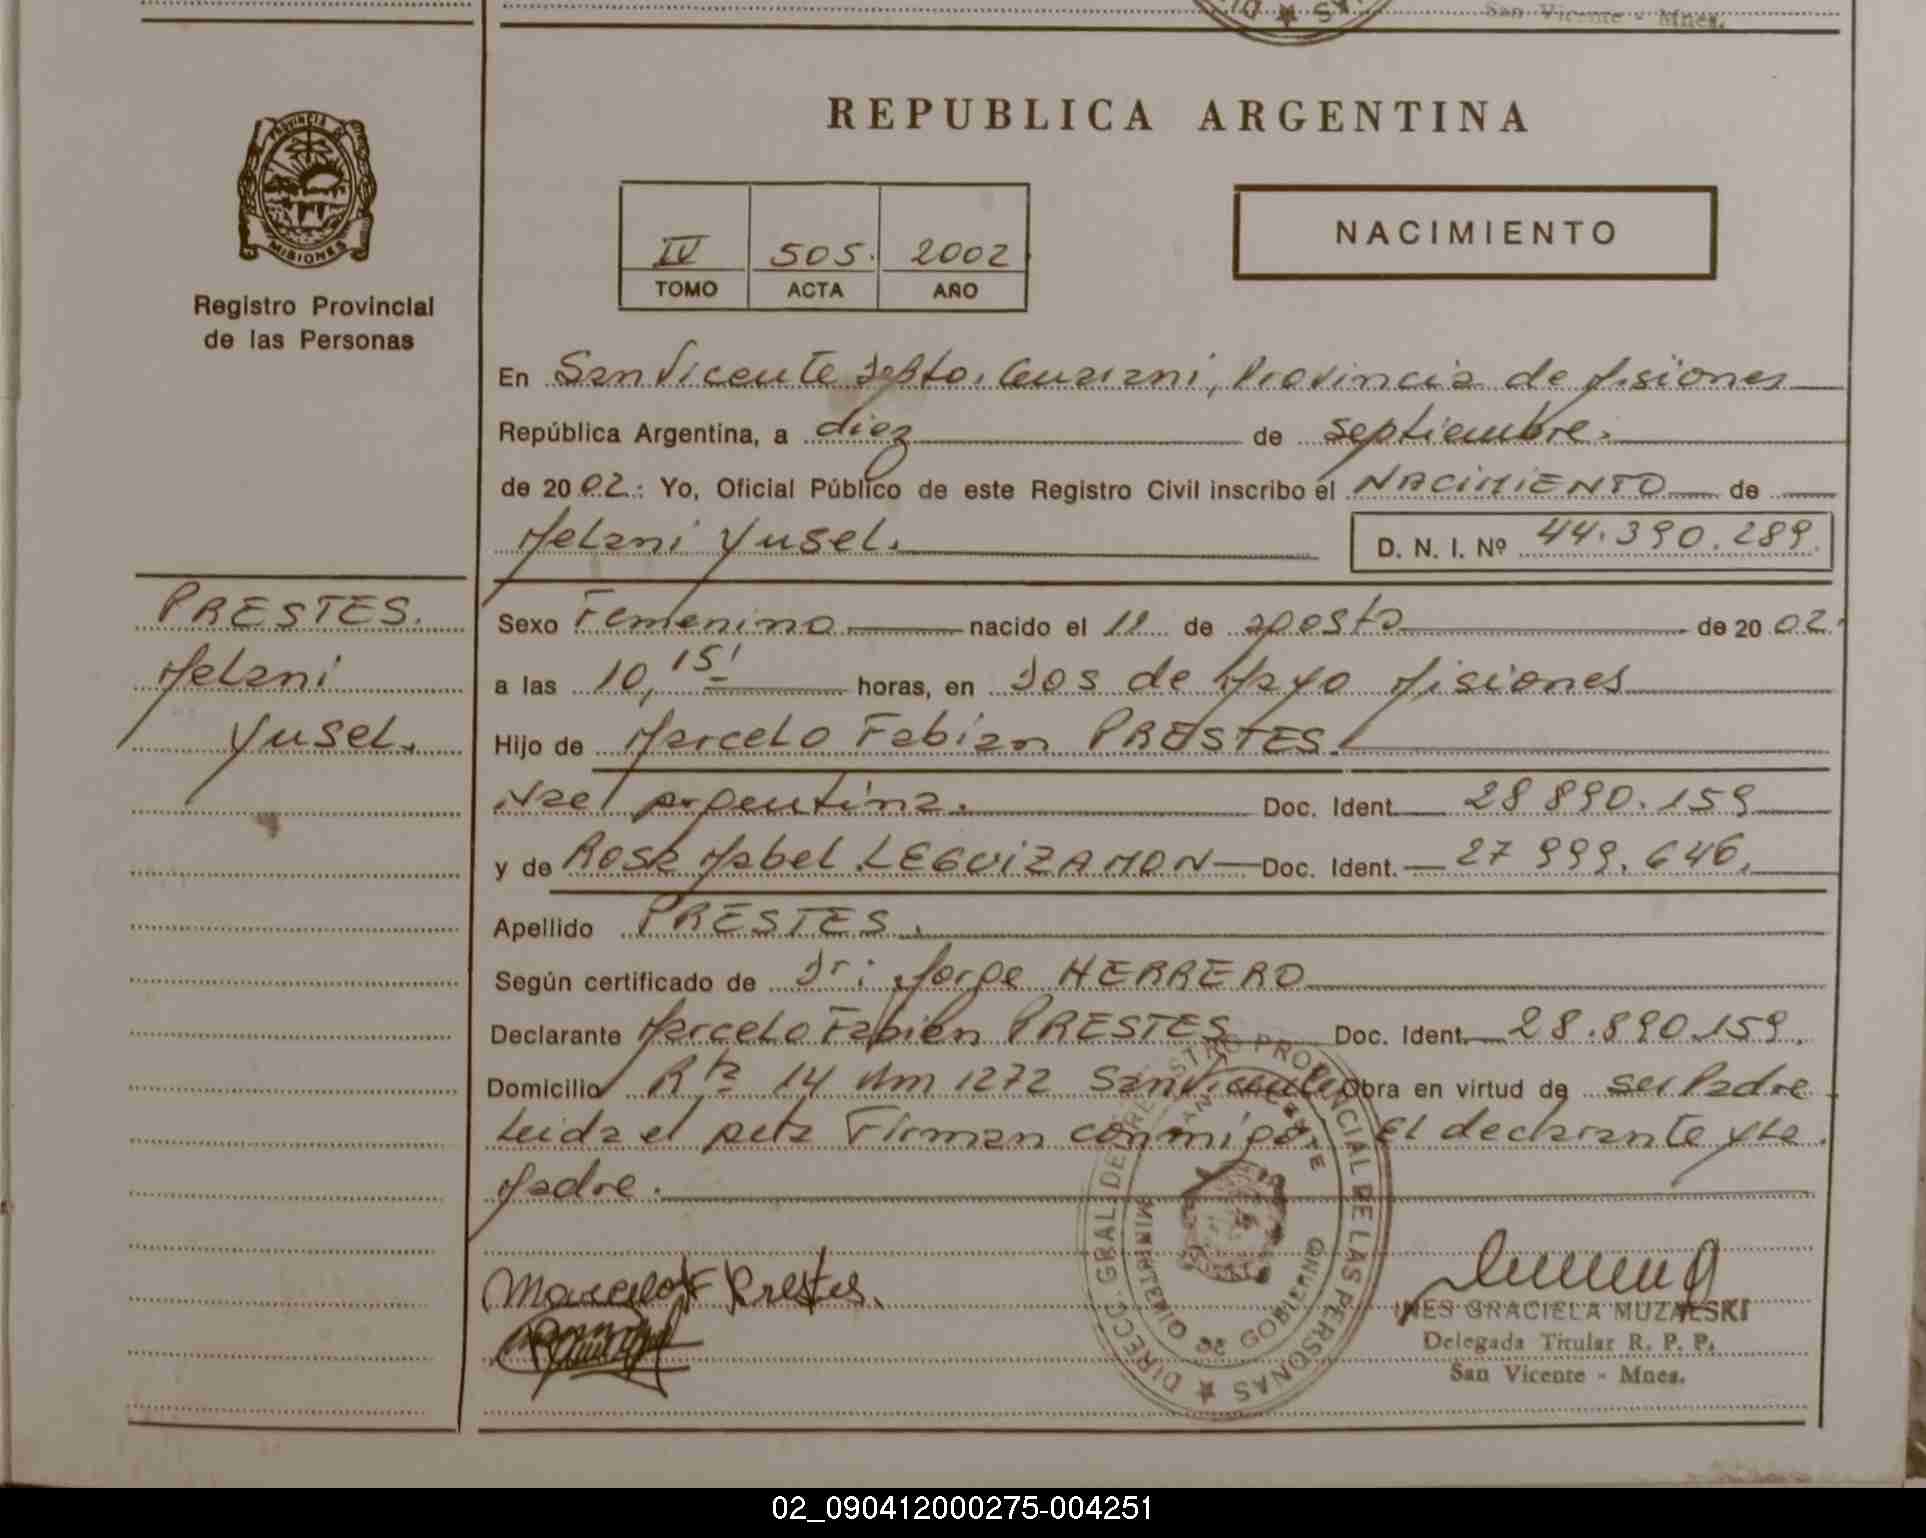 San Vicente - Mnes.
PROVINCIA DE
MISIONES
Registro Provincial
de las Personas
REPUBLICA ARGENTINA
IV 505. 2002
TOMO ACTA AÑO
NACIMIENTO
En San Vicente Depto. Guarani, Provincia de Misiones
República Argentina, a diez de septiembre.
de 2002: Yo, Oficial Público de este Registro Civil inscribo el NACIMIENTO de
Melani Yusel. D. N. I. Nº 44.390.289
PRESTES.
Melani
Yusel.
Sexo Femenino nacido el 11 de agosto de 2002.
a las 10,15' horas, en Dos de Mayo Misiones
Hijo de Marcelo Fabian PRESTES.
Nac. argentina. Doc. Ident. 28 890.159
y de Rosa Mabel LEGUIZAMON Doc. Ident. 27 999.646.
Apellido PRESTES.
Según certificado de Dr: Jorge HERRERO
Declarante Marcelo Fabian PRESTES Doc. Ident. 28.890.159.
Domicilio Rta 14 Km 1272 San Vicente Obra en virtud de ser Padre
Leida el acta Firman conmigo. El declarante y La
Madre.
Marcelo F Prestes.
DIRECC. GRAL. DEL REGISTRO PROVINCIAL DE LAS PERSONAS
SAN VICENTE
MINISTERIO DE GOBIERNO
INES GRACIELA MUZALSKI
Delegada Titular R. P. P.
San Vicente - Mnes.
02_090412000275-004251